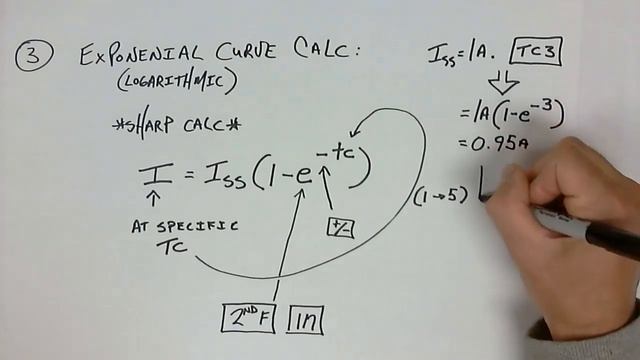 3 EXPONENIAL CURVE CALC:
(LOGARITHMIC)
*SHARP CALC*
I = Iss (1-e^-tc)
AT SPECIFIC
TC
+/-
2ND F ln
Iss = 1A. TC3
= 1A(1-e^-3)
= 0.95A
(1→5)